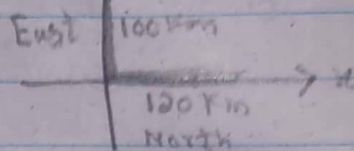 East 100 Km
x
120 Km
North